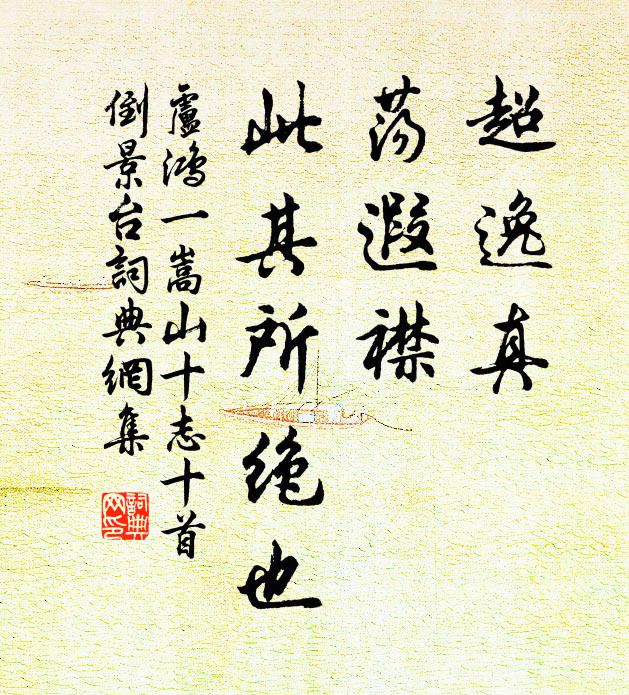 超逸真
荡遐襟
此其所绝也
盧鴻一嵩山十志十首
倒景台詞典網集
詞典
网印